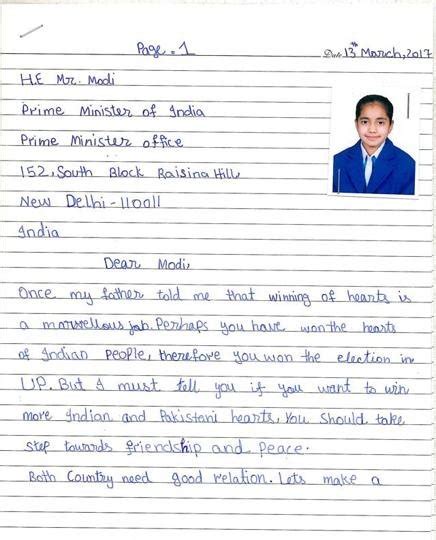 Page. 1
Date 13th March, 2017
H.E Mr. Modi
Prime Minister of India
Prime Minister office
152, South Block Raisina Hill,
New Delhi-110011
India
Dear Modi,
Once my father told me that winning of hearts is
a marvellous job. Perhaps you have won the hearts
of Indian people, therefore you won the election in
UP. But I must tell you if you want to win
more Indian and Pakistani hearts, You should take
step towards friendship and Peace.
Both Country need good relation. Lets make a